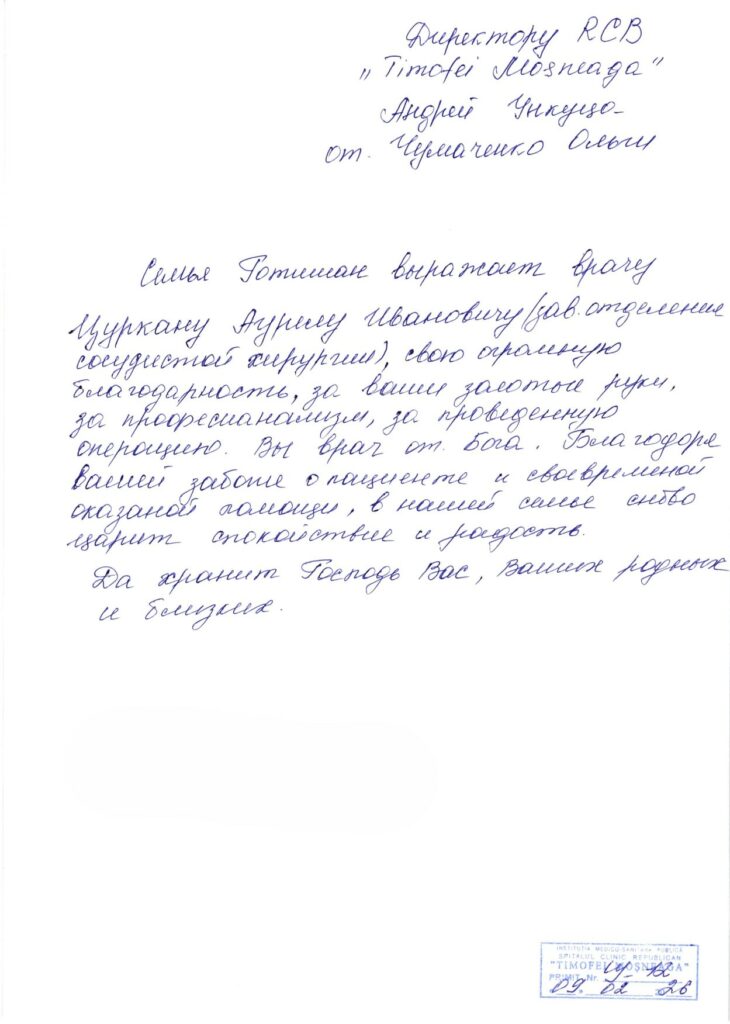 Директору RCB
"Timofei Moşneaga"
Андрей Ункуцо-
от. Чумаченко Ольги
Семья Готишан выражает врачу
Цуркану Аурелу Ивановичу (зав. отделения
сосудистой хирургии), свою огромную
благодарность, за ваши золотые руки,
за професианализм, за проведенную
операцию. Вы врач от. Бога. Благодоря
вашей заботе о пациенте и своевременой
оказаной помощи, в нашей семье снова
царит спокойствие и радость.
Да хранит Господь Вас, Ваших родных
и близких.
INSTITUȚIA MEDICO-SANITARĂ PUBLICĂ
SPITALUL CLINIC REPUBLICAN
"TIMOFEI MOȘNEAGA"
PRIMIT Nr.
09. 02 26